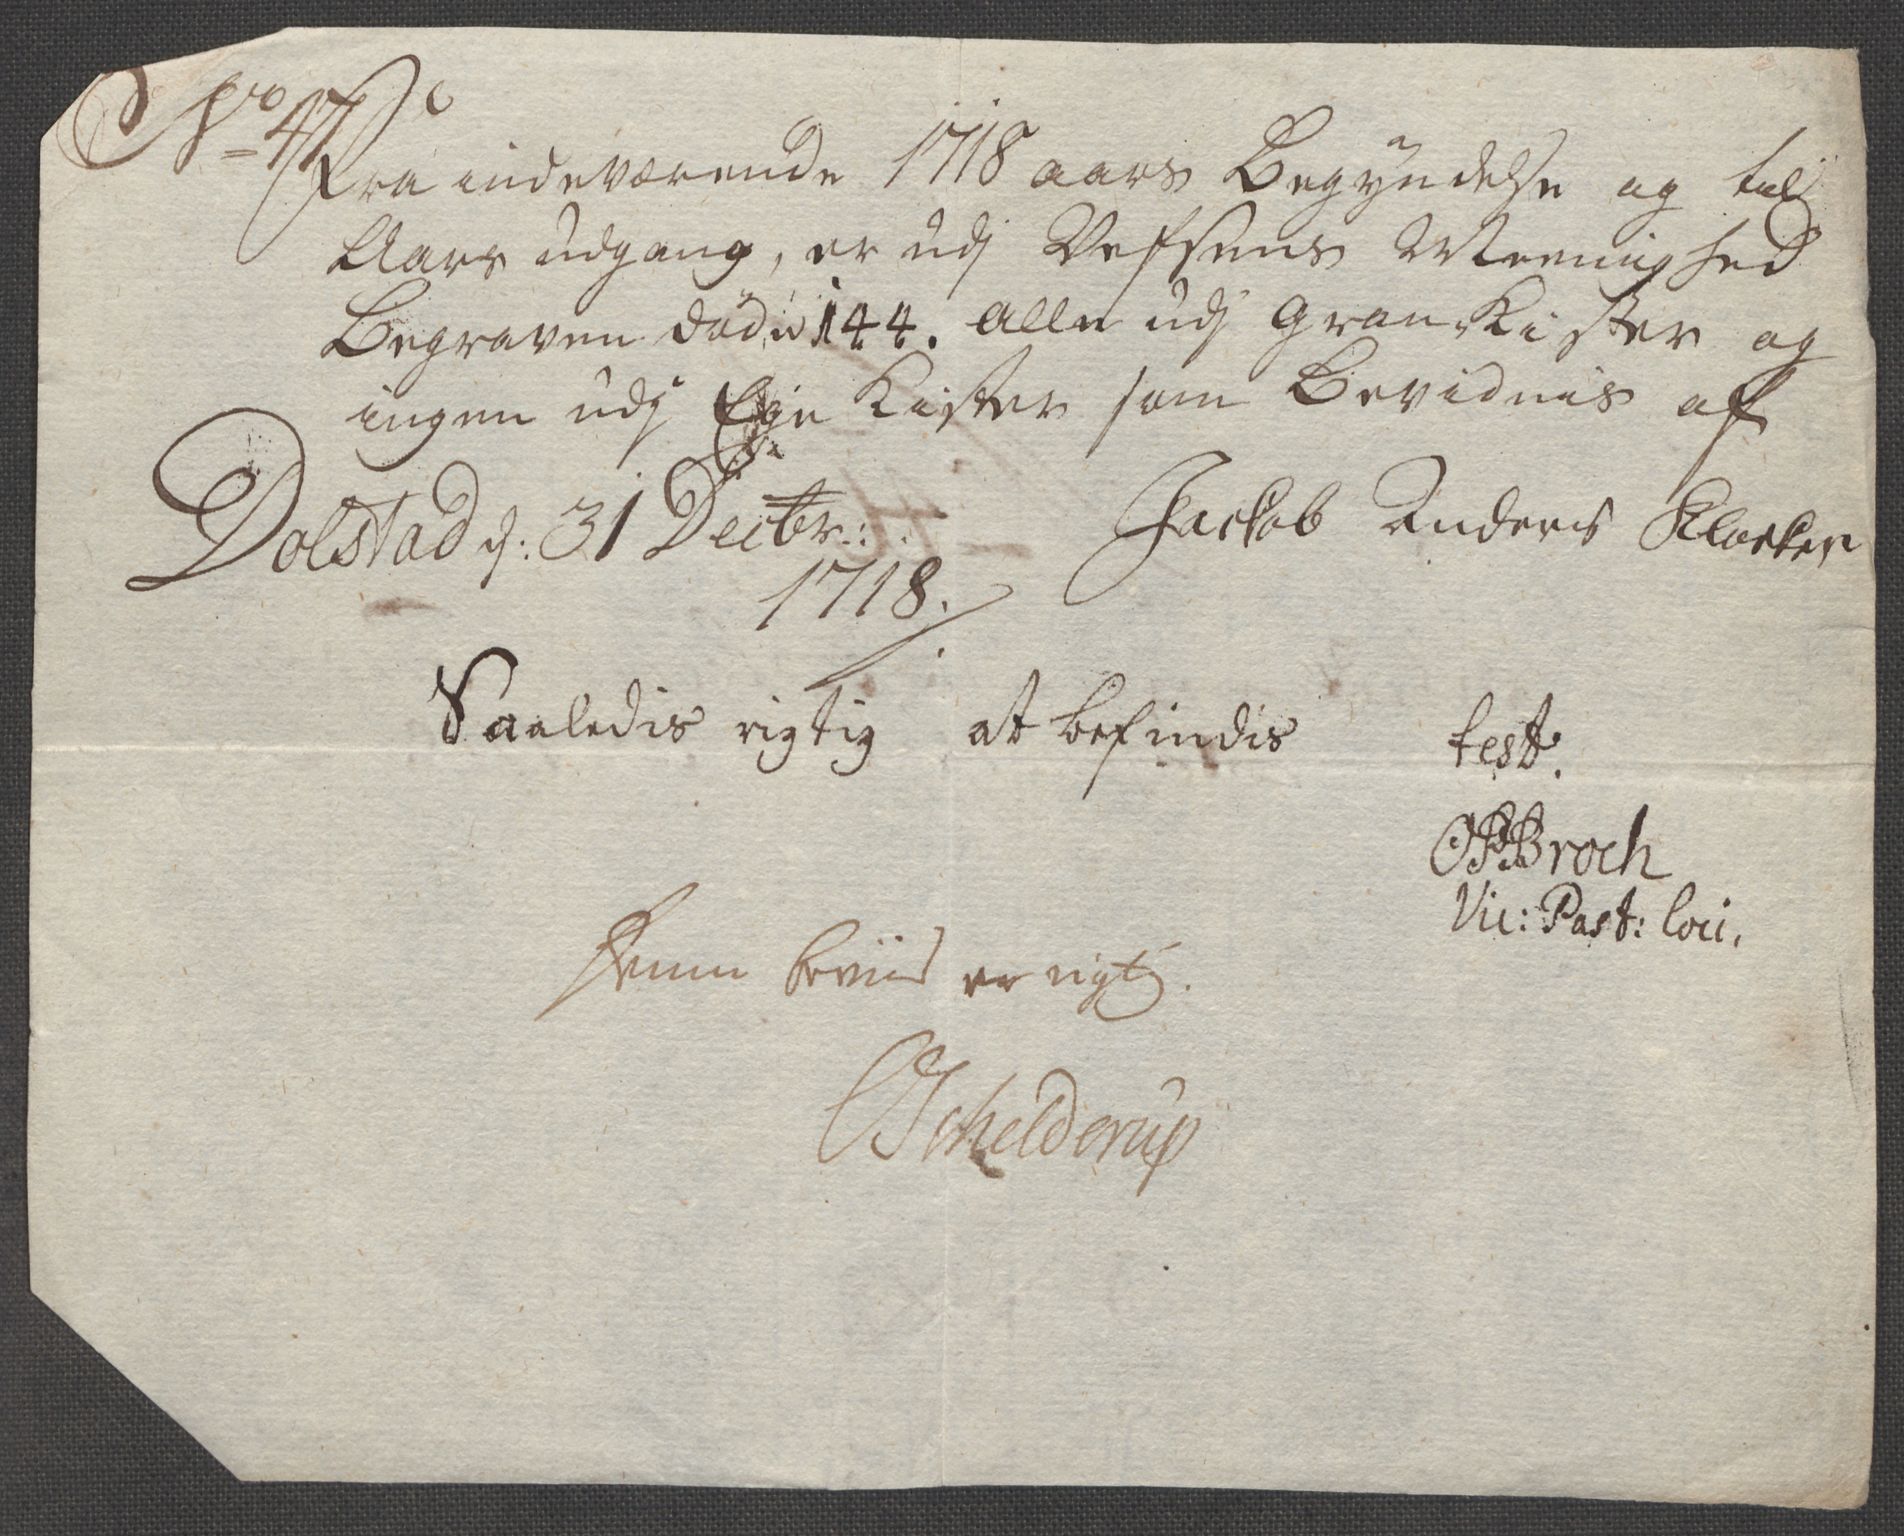 No 47
Fra indeværende 1718 aars Begÿndelse og til
Aars udgang, er udj Vefsens Meenighed
Begraven døde 144. alle udj Gran Kister og
ingen udj Ege Kister som Bevidnis af
Dolstad d: 31 Decbr: Jackob Anders Klocker
1718.
Saaledis rigtig at befindis test.
OPBroch
Vic: Past: loci.
Denne beviis er rigtig.
Schelderup